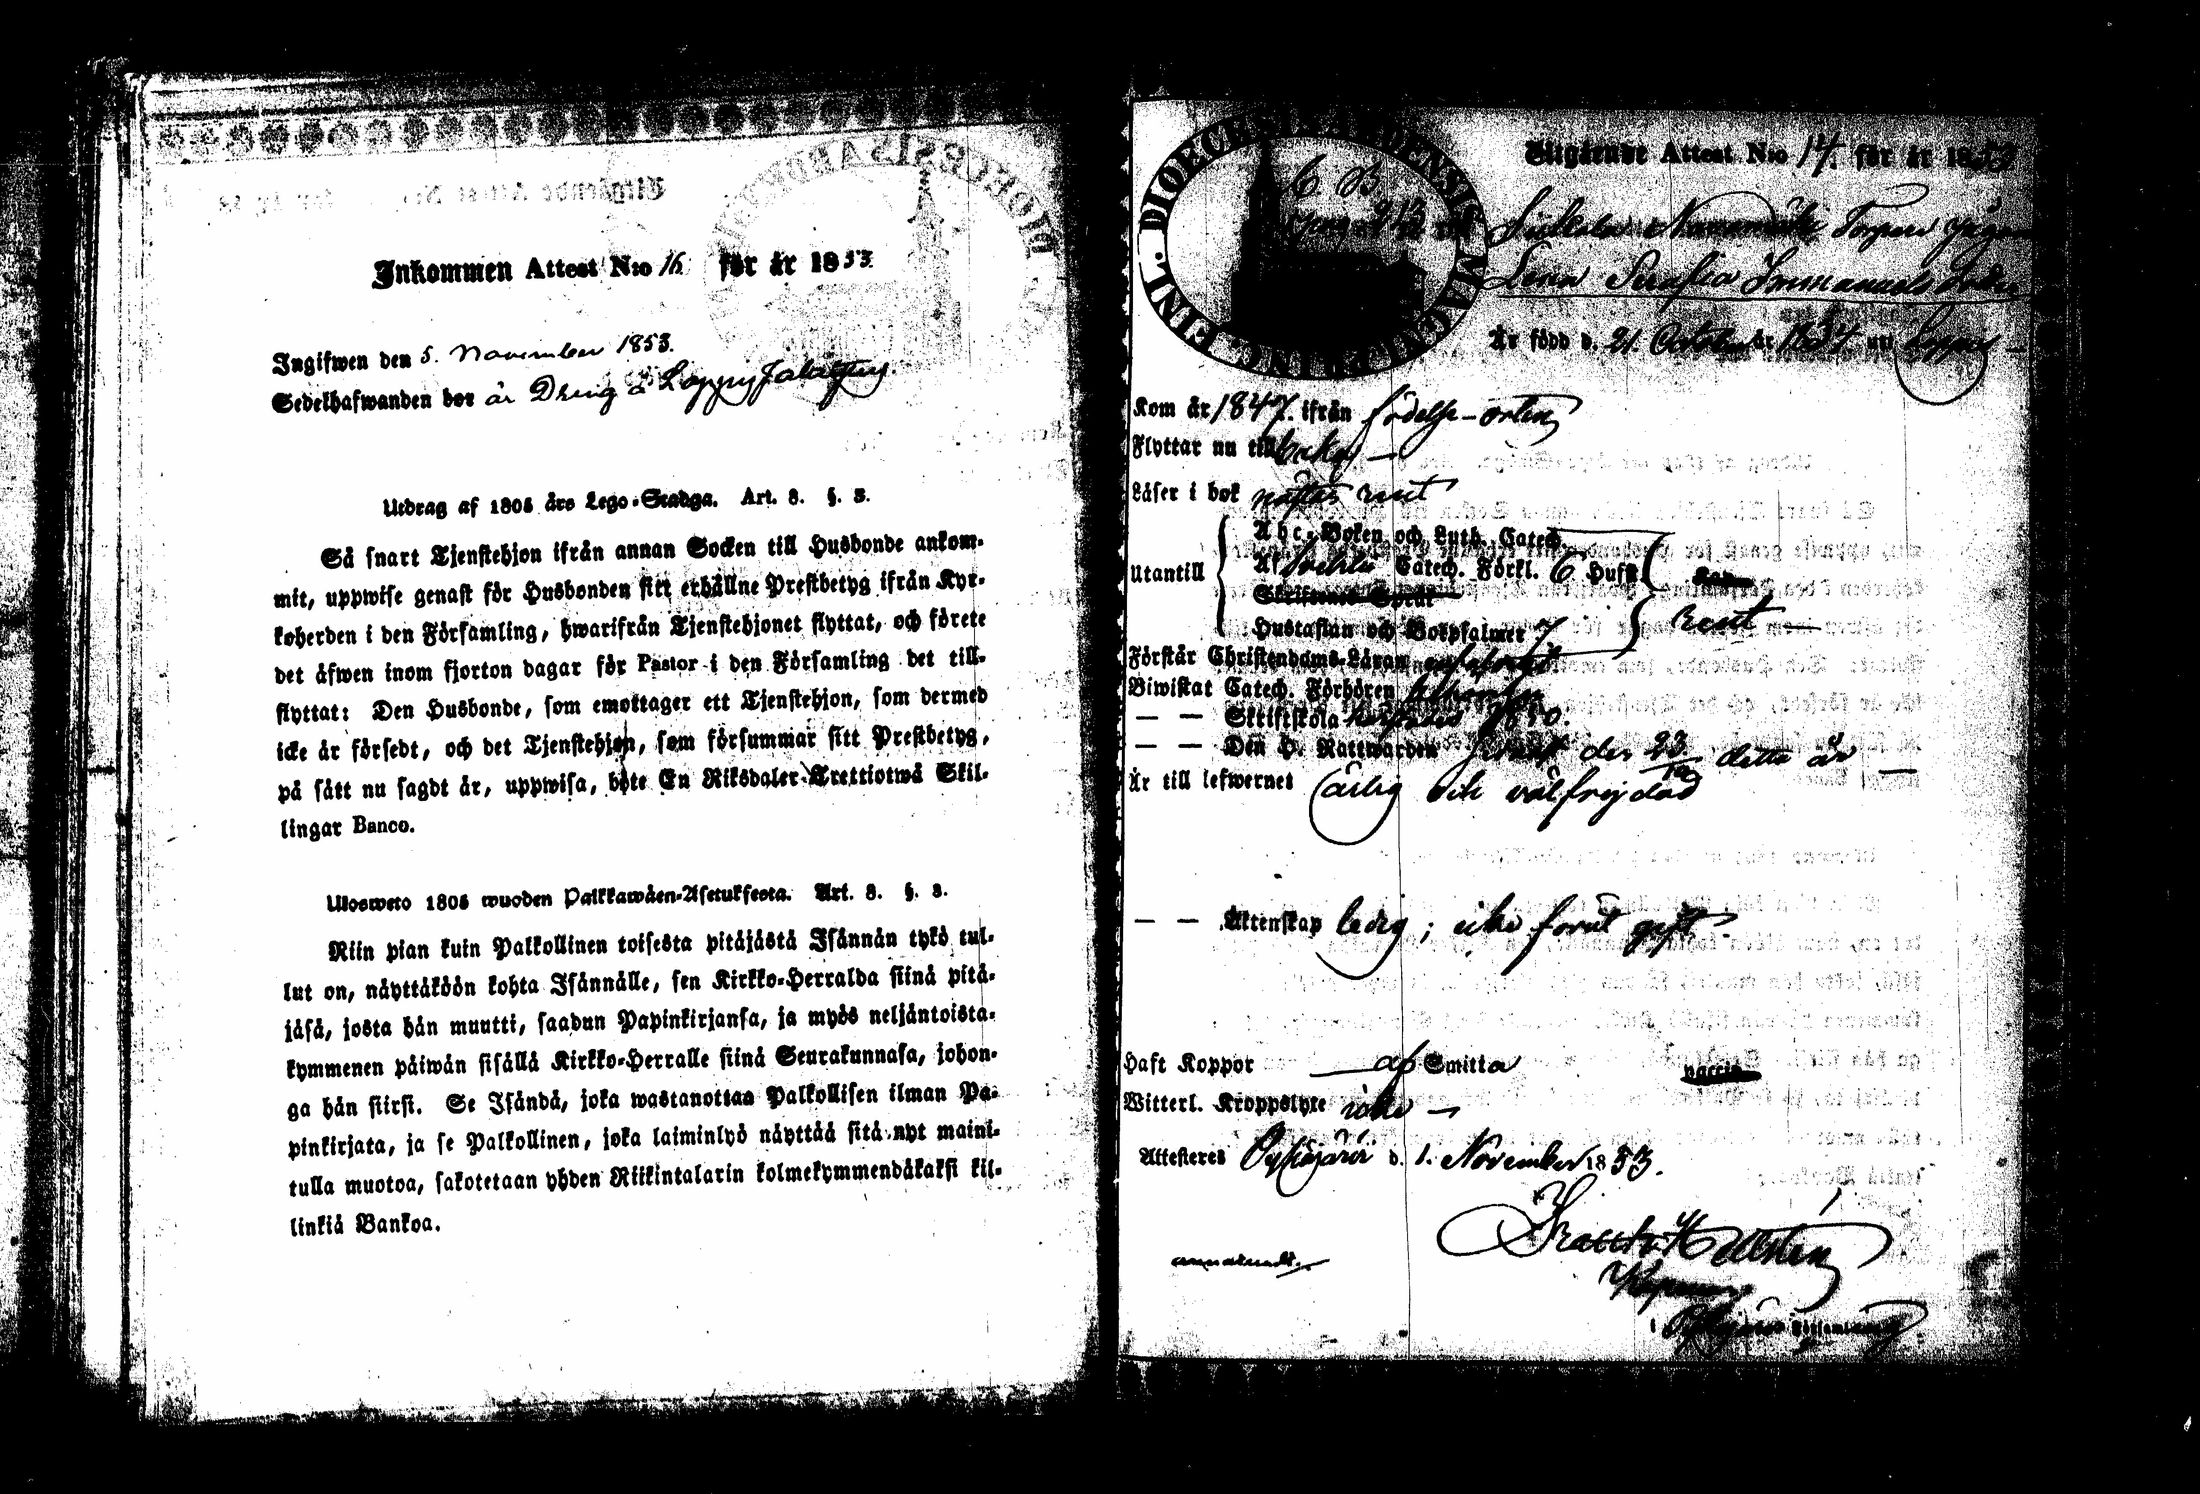 Inkommen Attest N:o 16 för år 1853
Ingifwen den 5. November 1853.
Sedelhafwanden bor är Dreng å
Utdrag af 1805 års Lego-Stadga. Art. 8. §. 3.
Så snart Tjenstehjon ifrån annan Socken till Husbonde ankom-
mit, uppwise genast för Husbonden sitt erhållne Prestbetyg ifrån Kyr-
koherden i den Församling, hwarifrån Tjenstehjonet flyttat, och förete
det äfwen inom fjorton dagar för Pastor i den Församling det till-
flyttat: Den Husbonde, som emottager ett Tjenstehjon, som dermed
icke är försedt, och det Tjenstehjon, som försummar sitt Prestbetyg,
på sätt nu sagdt är, uppwisa, böte En Riksdaler Trettiotwå Skil-
lingar Banco.
Ulosweto 1805 wuoden Palkkawäen-Asetuksesta. Art. 8. §. 3.
Niin pian kuin Palkollinen toisesta pitäjästä Isännän tykö tul-
lut on, näyttäköön kohta Isännälle, sen Kirkko-Herralda siinä pitä-
jäsä, josta hän muutti, saadun Papinkirjansa, ja myös neljäntoista-
kymmenen päiwän sisällä Kirkko-Herralle siinä Seurakunnasa, johon-
ga hän siirsi. Se Isändä, joka wastanottaa Palkollisen ilman Pa-
pinkirjata, ja se Palkollinen, joka laiminlyö näyttää sitä nyt maini-
tulla muotoa, sakotetaan yhden Riikintalarin kolmekymmendäkaksi kil-
linkiä Bankoa.
DIOECESIS ABOENSIS MAGNI PRINC. FINL.
Utgående Attest N:o 14. för år 1853
C B
pag. 213
Torpare
Lena Serafia Immanuels
Är född d. 21. October år 1834 uti Loppis
Kom år 1847. ifrån födelse-orten
Flyttar nu till
Läser i bok nästan rent
Utantill
Abc-Boken och Luth. Catech.
Af Catech. Förkl. 6 Hufst
Skriftenes Språk
Hustaflan och Botpsalmer 7
rent
Förstår Christendoms-Läran
Biwistat Catech. Förhören
— — Skriftskola 1850.
— — Den H. Nattwarden den 23/10 detta år —
Är till lefwernet ärlig och välfrejdad
— — Äktenskap ledig; icke förut gift
Haft Koppor — af Smitta vaccin
Witterl. Kroppslyte icke —
Attesteres Pyhäjärvi d. 1. November 1853.
i Församling